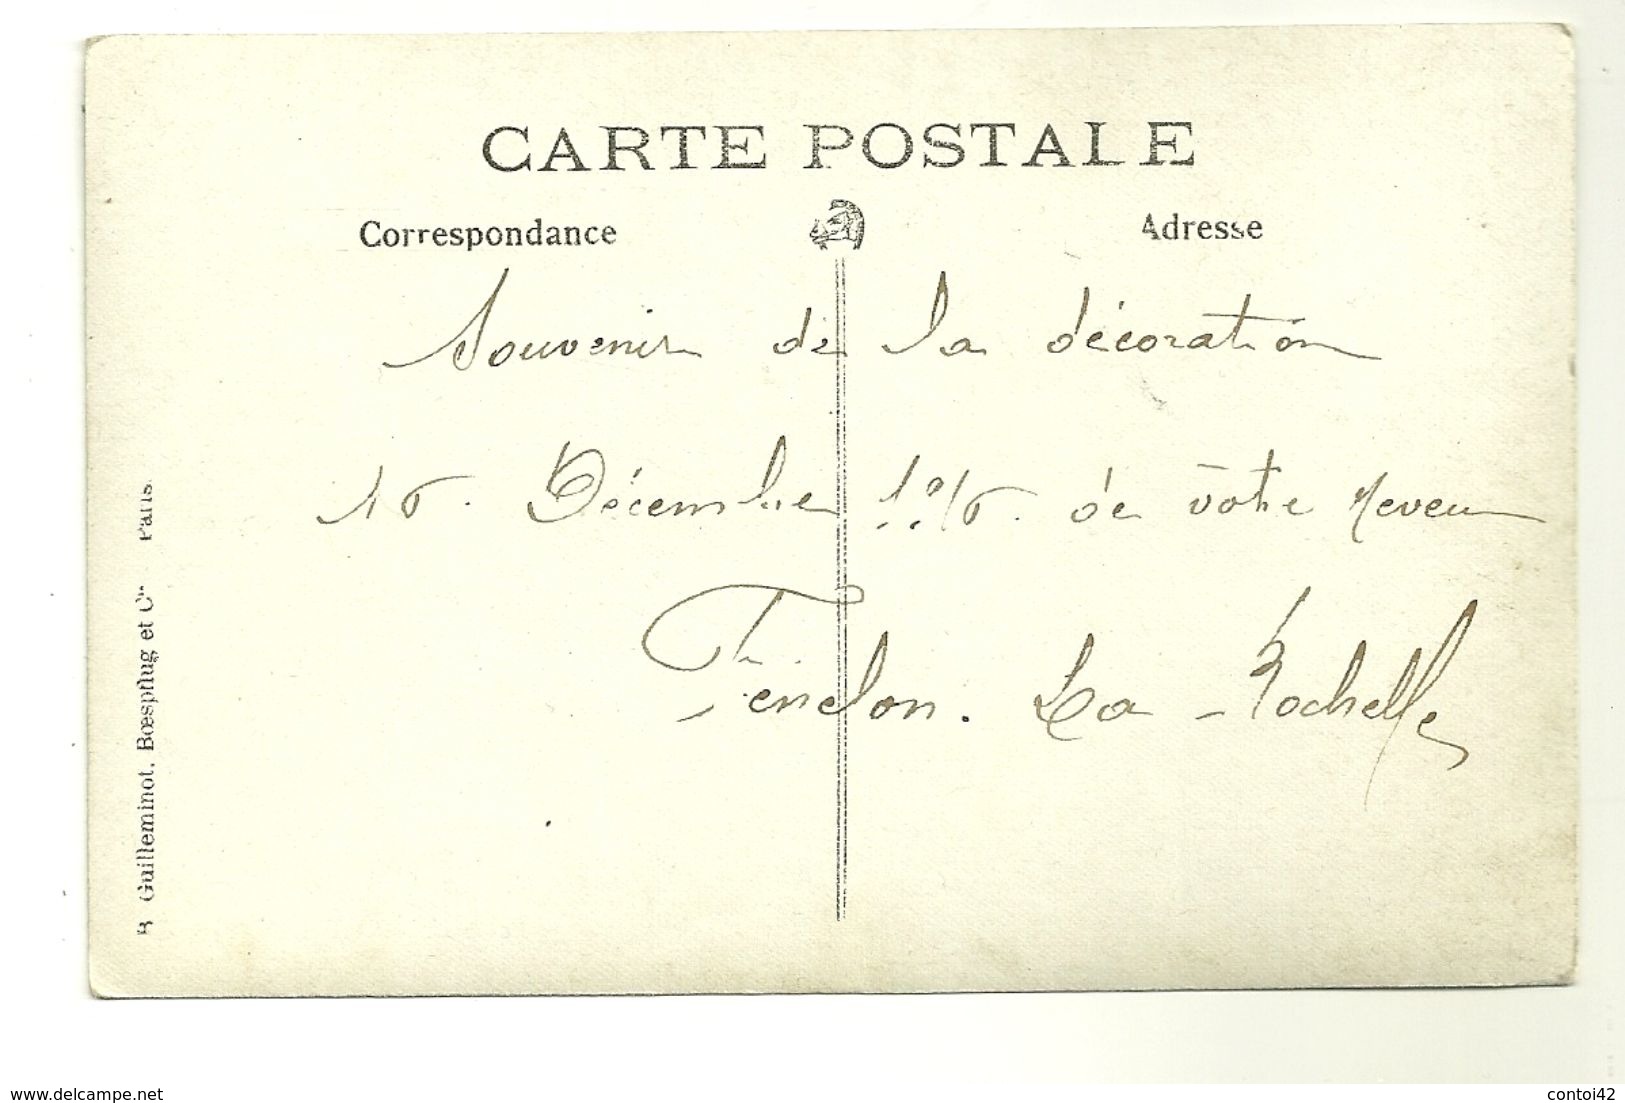 CARTE POSTALE
Correspondance
Adresse
Souvenir de la décoration
16. Décembre 1916. de votre neveu
Fenelon. La-Rochelle
B Guilleminot, Bœspflug et Cie Paris.
www.delcampe.net
contoi42